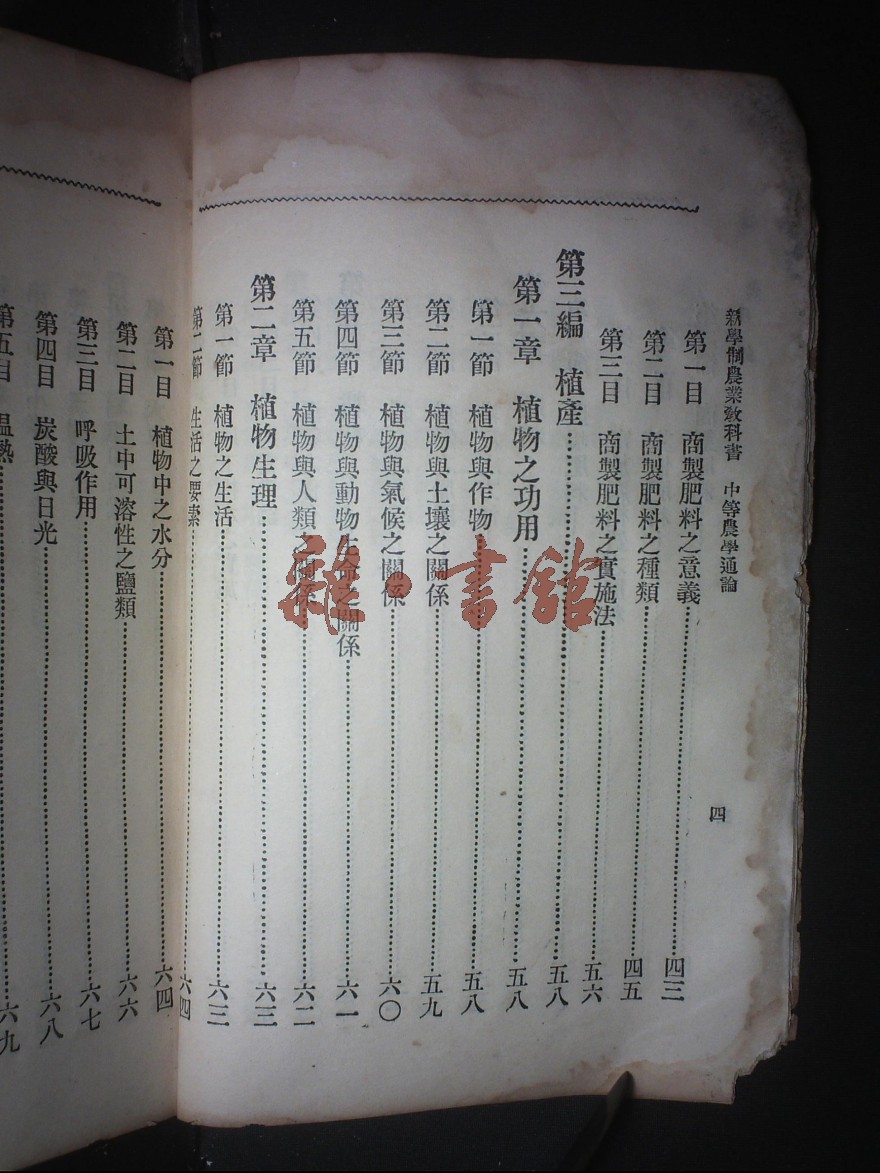 新學制農業教科書 中等農學通論 四
第一目 商製肥料之意義……四三
第二目 商製肥料之種類……四五
第三目 商製肥料之實施法……五六
第三編 植產……五八
第一章 植物之功用……五八
第一節 植物與作物……五八
第二節 植物與土壤之關係……五九
第三節 植物與氣候之關係……六〇
第四節 植物與動物生命之關係……六一
第五節 植物與人類之關係……六二
第二章 植物生理……六三
第一節 植物之生活……六三
第二節 生活之要素……六四
第一目 植物中之水分……六四
第二目 土中可溶性之鹽類……六六
第三目 呼吸作用……六七
第四目 炭酸與日光……六八
第五目 溫熱……六九
雜·書館